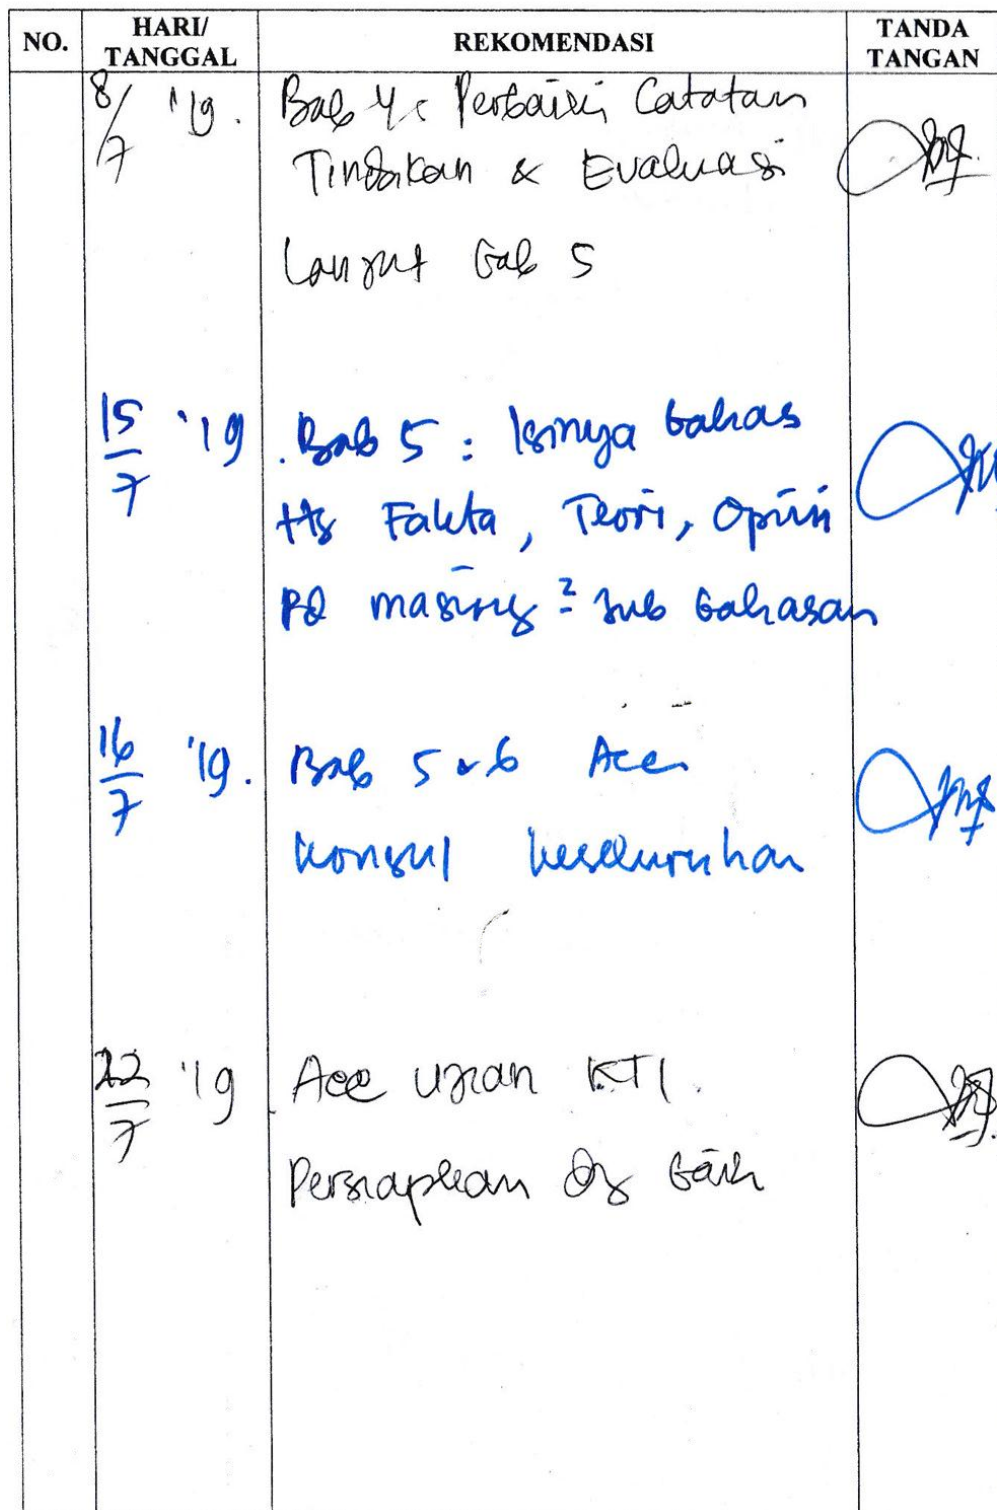 NO.
HARI/
TANGGAL
REKOMENDASI
TANDA
TANGAN
8/7 '19.
Bab 4: Perbaiki Catatan
Tindakan & Evaluasi
Lanjut bab 5
15/7 '19.
Bab 5: Isinya bahas
ttg Fakta, Teori, Opini
pd masing² sub bahasan
16/7 '19.
Bab 5 & 6 Acc
Konsul keseluruhan
22/7 '19
Acc ujian KTI.
Persiapkan dg baik